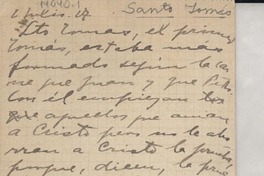 M040.1
1 Julio. 17 Santo Tomás
Sto Tomas, el primer
Tomas, estaba más
formado según la car
ne que Juan y que Pedro
Con él empiezan los
que aquellos que aman
a Cristo pero no le aho
rran a Cristo la prueba,
porque, dicen, la prue